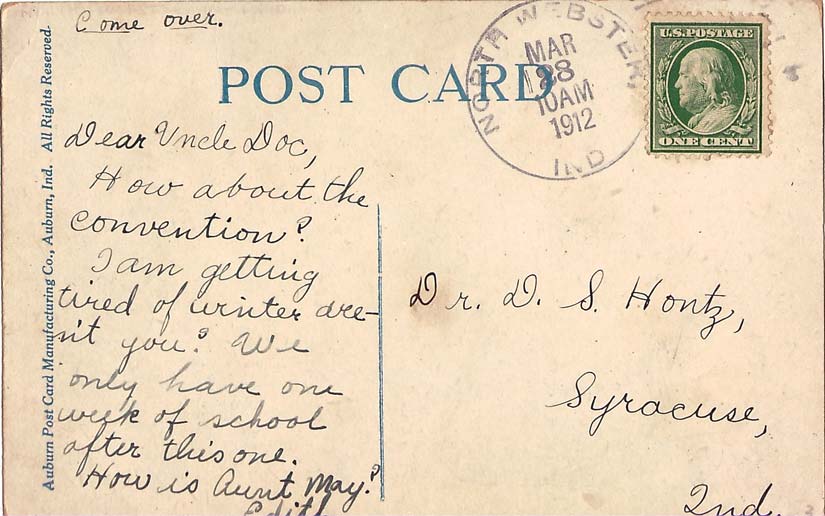 Come over.
POST CARD
NORTH WEBSTER,
MAR
28
10AM
1912
IND
U.S. POSTAGE
ONE CENT
Auburn Post Card Manufacturing Co., Auburn, Ind. All Rights Reserved.
Dear Uncle Doc,
How about the
convention?
I am getting
tired of winter are-
n't you? We
only have one
week of school
after this one.
How is Aunt May?
Edith
Dr. D. S. Hontz,
Syracuse,
Ind.